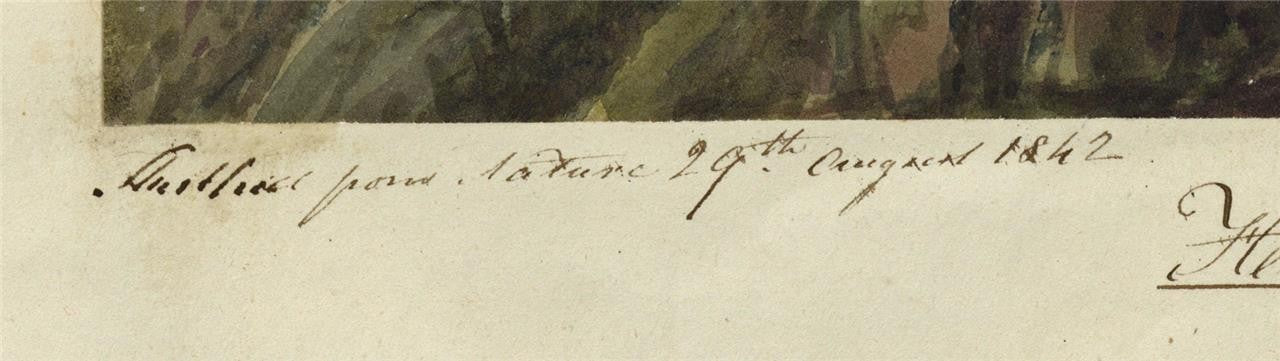 Sketched from Nature 29th August 1842